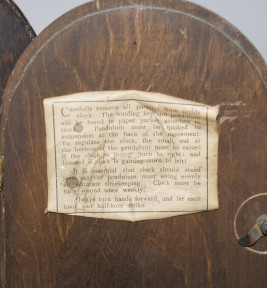 Carefully remove all packing from inside
clock. The winding key and pendulum
will be found in paper packet attached to
clock. Pendulum must be hooked to
suspension at the back of the movement.
To regulate the clock, the small nut at
the bottom of the pendulum must be raised
if the clock is losing (turn to right) and
lowered if clock is gaining (turn to left)
It is essential that clock should stand
and the pendulum must swing evenly
accurate timekeeping. Clock must be
fully wound once weekly.
Always turn hands forward, and let each
hour and half-hour strike.